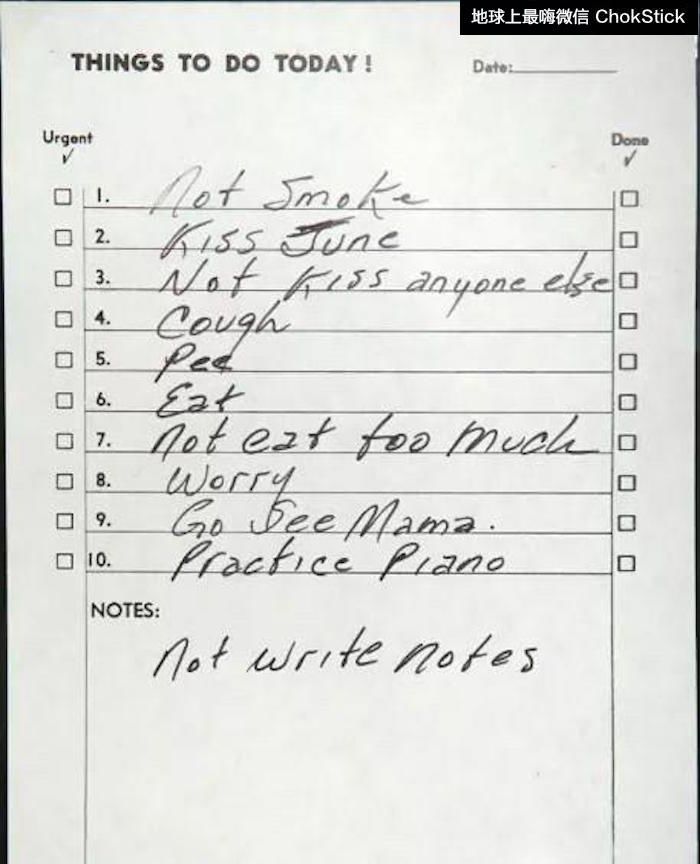 地球上最嗨微信 ChokStick
THINGS TO DO TODAY!
Date:
Urgent
Done
1. Not Smoke
2. Kiss June
3. Not Kiss anyone else
4. Cough
5. Pee
6. Eat
7. Not eat too much
8. Worry
9. Go See Mama.
10. Practice Piano
NOTES:
Not write notes